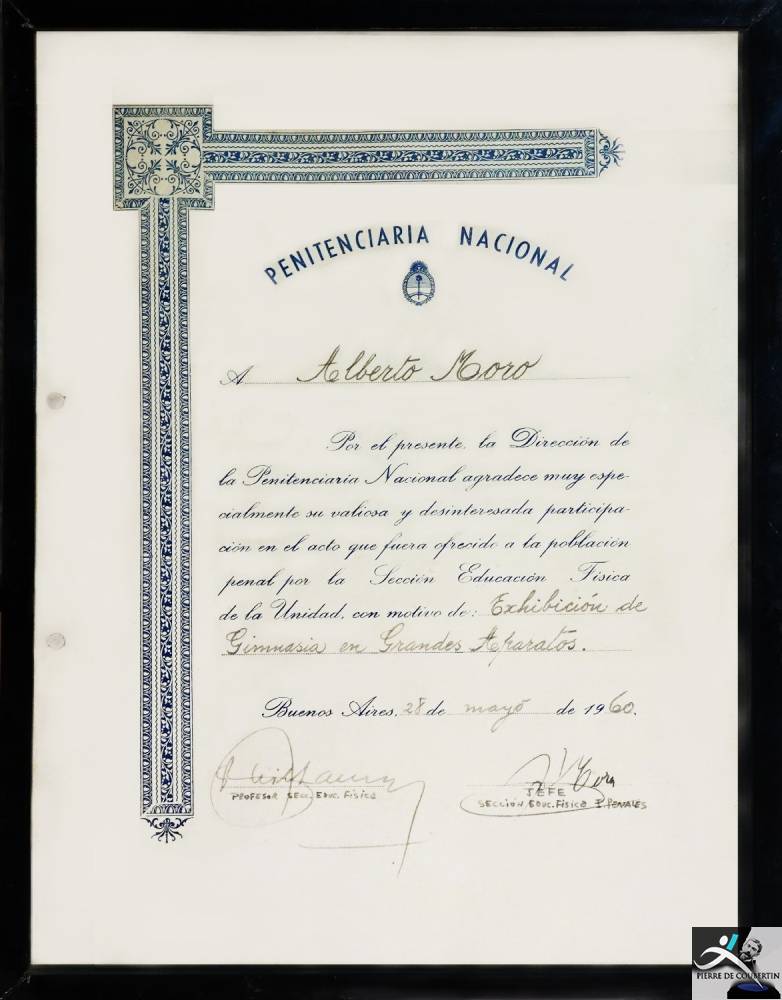 PENITENCIARIA NACIONAL
A Alberto Moro
Por el presente, la Dirección de
la Penitenciaria Nacional agradece muy espe-
cialmente su valiosa y desinteresada participa-
ción en el acto que fuera ofrecido a la población
penal por la Sección Educación Fisica
de la Unidad, con motivo de: Exhibición de
Gimnasia en Grandes Aparatos.
Buenos Aires, 28 de mayo de 1960.
PROFESOR SEC. EDUC. FISICA
JEFE
SECCIÓN EDUC. FISICA I. PENALES
PIERRE DE COUBERTIN